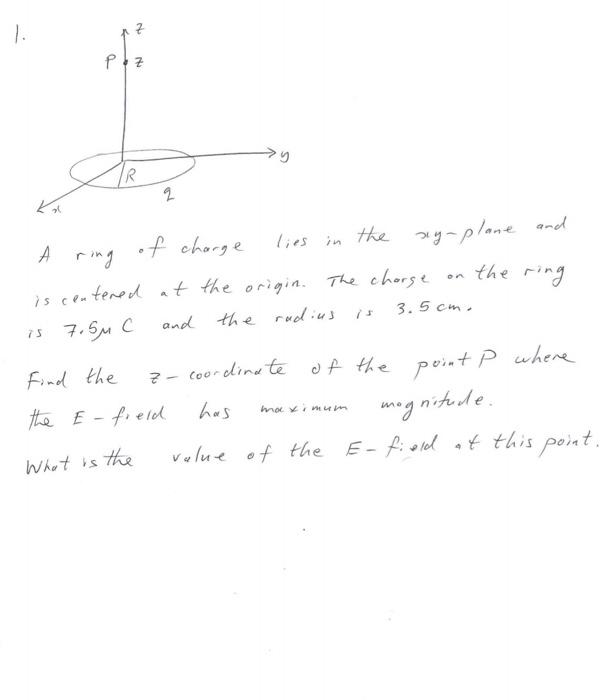 1.
z
P z
y
R
q
x
A ring of charge lies in the xy-plane and
is centered at the origin. The charge on the ring
is 7.5μC and the radius is 3.5cm.
Find the z-coordinate of the point P where
the E-field has maximum magnitude.
What is the value of the E-field at this point.